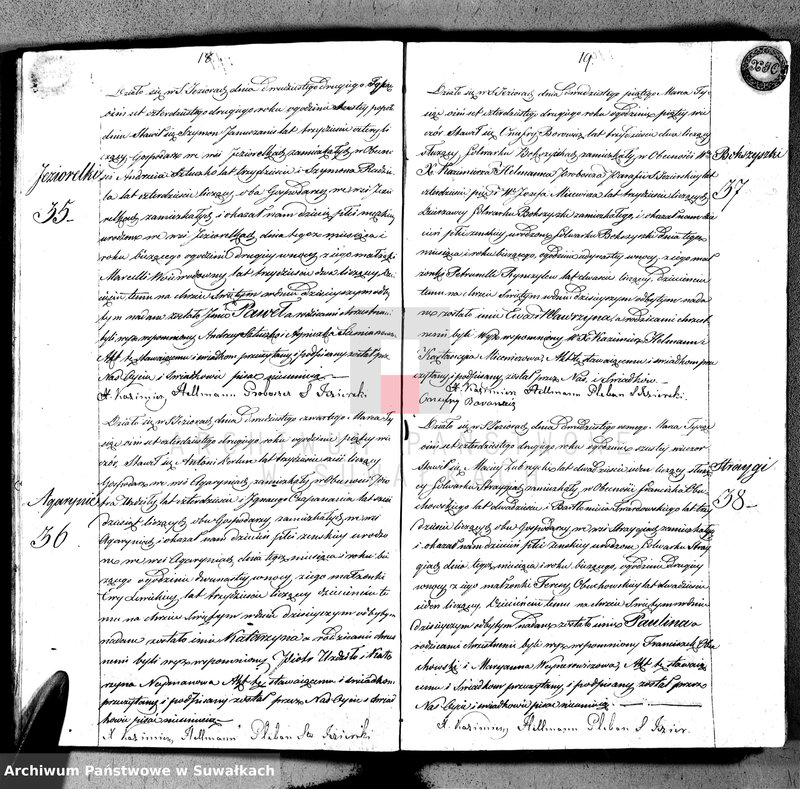 18
Jeziorelki
35
Działo się w S. Jeziorach dnia dwudziestego drugiego
ośmset czterdziestego drugiego roku o godzinie popół
dniu Stawił się Szymon lat trzydzieści cztery li
czący Gospodarz we wsi Jeziorelkach zamieszkały w Obecno
ści Andrzeia lat trzydzieści i Szymona
lat czterdzieści liczący oba Gospodarze we wsi Jezi
orelkach zamieszkałych i okazał nam dziecię płci męskiej
urodzone we wsi Jeziorelkach dnia tegoż miesiąca i
roku bieżącego o godzinie drugiey w nocy z iego małżonki
Marcelli lat trzydzieści dwa liczący Dzie
cięciu temu na chrzcie Świętym w dniu dzisieyszym odby
tym nadane zostało Imie Paweł a rodzicami chrzestnemi
byli wyżwspomniony Andrzey i Agnieszka
Akt ten stawaiącemu i świadkom przeczytany i podpisany został prze
Nas Oyciec i Świadkowie pisać nieumieią
X Kazimierz Hellmann Proboszcz S Jezierski
Agarynie
36
Działo się w S. Jeziorach dnia dwudziestego czwartego Marca Ty
siąc ośmset czterdziestego drugiego roku o godzinie piątey wie
czór, Stawił się Antoni Kordun lat trzydzieści sześć liczący
Gospodarz we wsi Agaryniach zamieszkały w Obecności Pio
tra Urdziły lat czterdzieści i Ignacego Czaparania lat
dziesiąt liczących obu Gospodarzy zamieszkałych we wsi
Agaryniach i okazał nam dziecię płci zenskiey urodzo
ne we wsi Agaryniach, dnia tegoż miesiąca i roku bie
żącego o godzinie dwunastey w nocy z iego małżonki
Ewy lat trzydzieści liczącey dziecięciu te
mu na chrzcie Świętym w dniu dzisieyszym odbytym
nadane zostało imie Katarzyna a rodzicami chrze
stnemi byli wyżwspomniony Piotr Urdziło i Kata
rzyna Naymanowa Akt ten stawaiącemu i świadkom
przeczytany i podpisany został przez Nas Oyciec i świad
kowie pisać nieumieią
X Kazimierz Hellmann Pleban Sto Jezierski
19
Bokszyszki
37
Działo się w S. Jeziorach dnia dwudziestego piątego Marca Ty
siąc ośmset czterdziestego drugiego roku o godzinie piątey wie
czór Stawił się Onufry lat trzydzieści dwa liczący
Służący folwarku Bokszyszkach zamieszkały w Obecności W
X Kazimierza Helmanna Proboszcza Parafii S. Jezierskiey lat
czterdzieści pięć i W Józefa Micewicza lat trzydzieści liczących
Dzierżawcy folwarku Bokszyszki zamieszkałego i okazał nam dzie
cię płci zenskiey urodzone folwarku Bokszyszki dnia tegoż
miesiąca i roku bieżącego, o godzinie iedynastey w nocy, z iego mał
żonki Petronelli lat dwadzieścia liczącey, dziecięciu
temu na chrzcie Świętym w dniu dzisieyszym odbytym nada
ne zostało imie Ewa Wawrzyna, a rodzicami chrzest
nemi byli Wyżwspomniony W X Kazimierz Helmann i
Konstancya Micewiczowa, Akt ten stawaiącemu i świadkom prze
czytany i podpisany został przez Nas, i Świadków
X Kazimierz Hellmann Pleban S Jezierski
Onufry
Straygi
38
Działo się w S. Jeziorach dnia dwudziestego osmego Marca Tysiąc
ośmset czterdziestego drugiego roku o godzinie szostey wieczór
Stawił się Maciey lat dwadzieścia ieden liczący Służą
cy folwarku Straygiach zamieszkały w Obecności Franciszka Obu
chowskiego lat dwadzieścia i Bartłomieia Twardowskiego lat trzy
dzieści liczących obu Gospodarzy we wsi Straygiach zamieszkałych
i okazał nam dziecię płci zenskiey urodzone folwarku Stray
giach dnia tegoż miesiąca i roku bieżącego, o godzinie drugiey
w nocy z iego małżonki Teressy Obuchowskiey lat dwadzieścia
ieden liczącey. Dziecięciu temu na chrzcie Świętym w dniu
dzisieyszym odbytym nadane zostało imie Paulina a
rodzicami chrzestnemi byli wyżwspomniony Franciszek Obu
chowski i Maryanna Woynarowiczowa, Akt ten stawaią
cemu i świadkom przeczytany i podpisany został przez
Nas Oyciec i świadkowie pisać nieumieią
X Kazimierz Hellmann Pleban S Jezier.
ARCHIWUM PAŃSTWOWE
W SUWAŁKACH
Archiwum Państwowe w Suwałkach